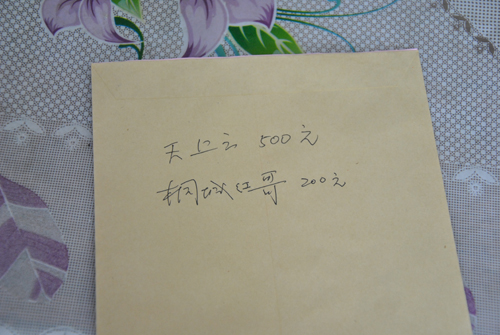 天上云 500元
桐城江哥 200元